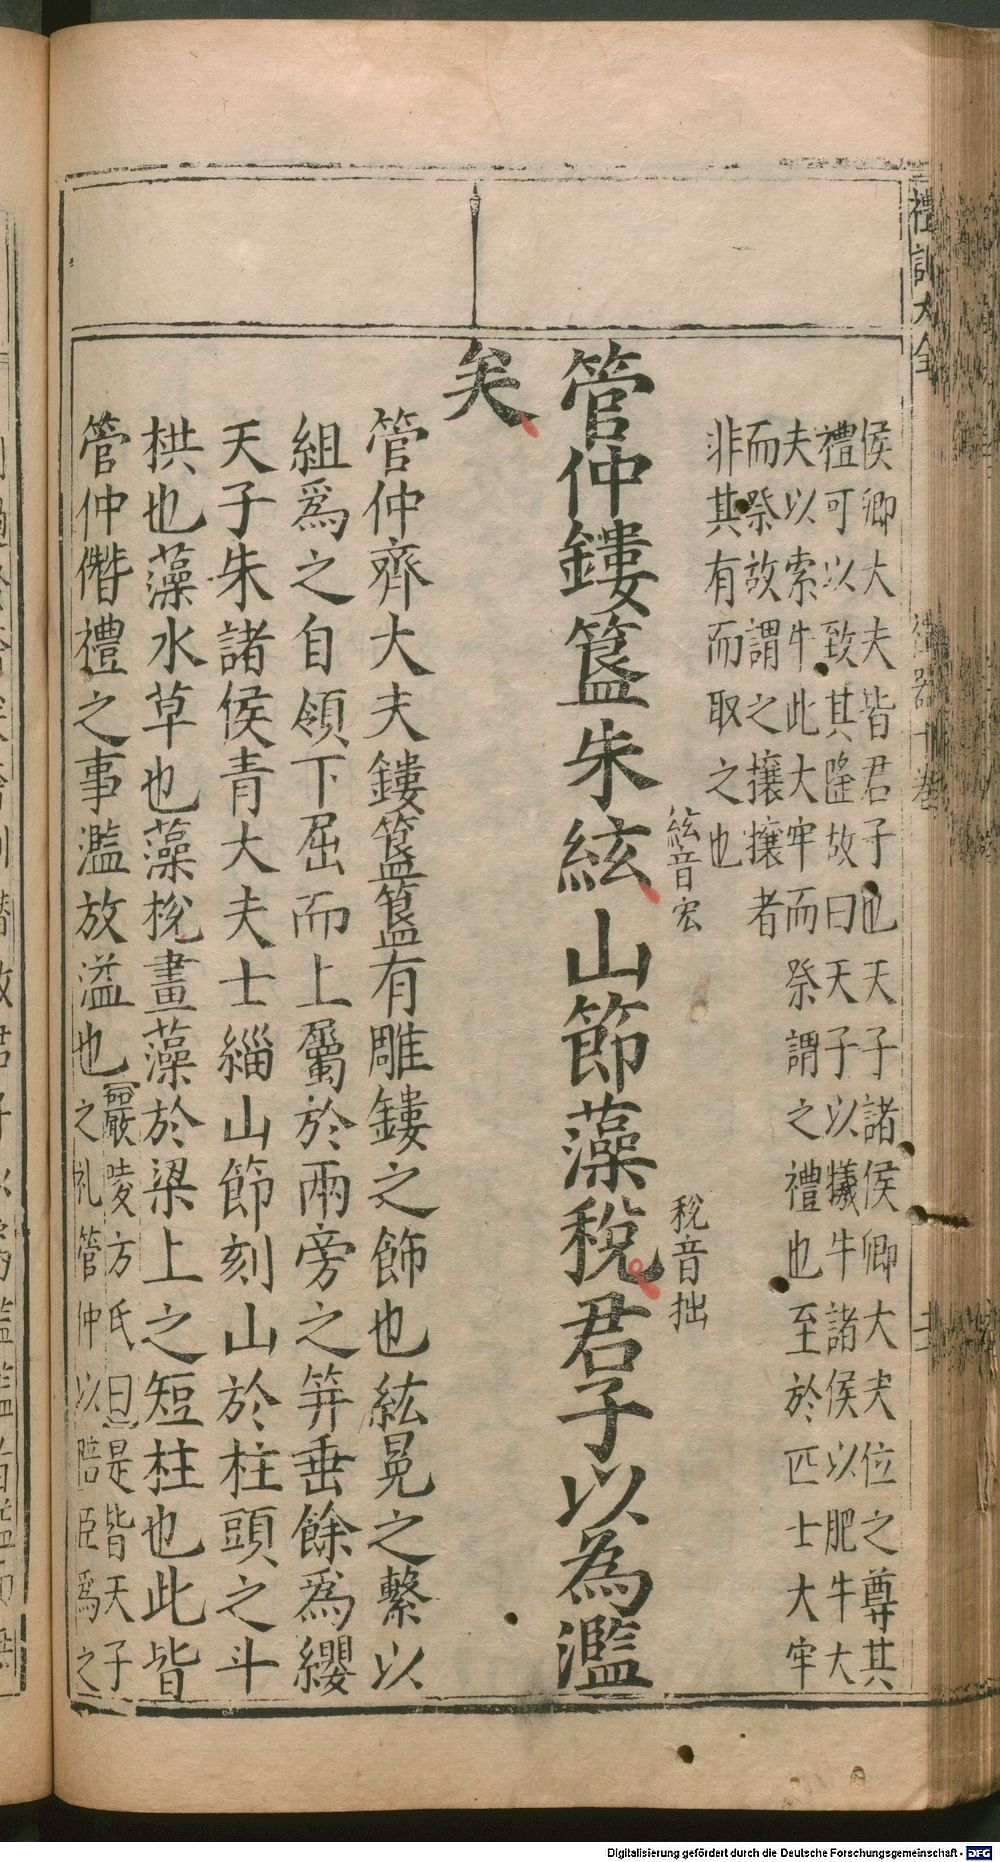 侯卿大夫皆君子也天子諸侯卿大夫位之尊其
禮可以致其隆故曰天子以犧牛諸侯以肥牛大
夫以索牛此大牢而祭謂之禮也至於匹士大牢
而祭故謂之攘攘者
非其有而取之也
管仲鏤簋朱絃山節藻稅君子以為濫
絃音宏
稅音拙
矣
管仲齊大夫鏤簋簋有雕鏤之飾也紘冕之繫以
組爲之自領下屈而上屬於兩旁之笄垂餘爲纓
天子朱諸侯青大夫士緇山節刻山於柱頭之斗
栱也藻水草也藻梲畫藻於梁上之短柱也此皆
管仲僭禮之事濫放溢也
嚴陵方氏曰是皆天子
之礼管仲以陪臣爲之
禮記大全
禮器十卷
Digitalisierung gefördert durch die Deutsche Forschungsgemeinschaft - DFG